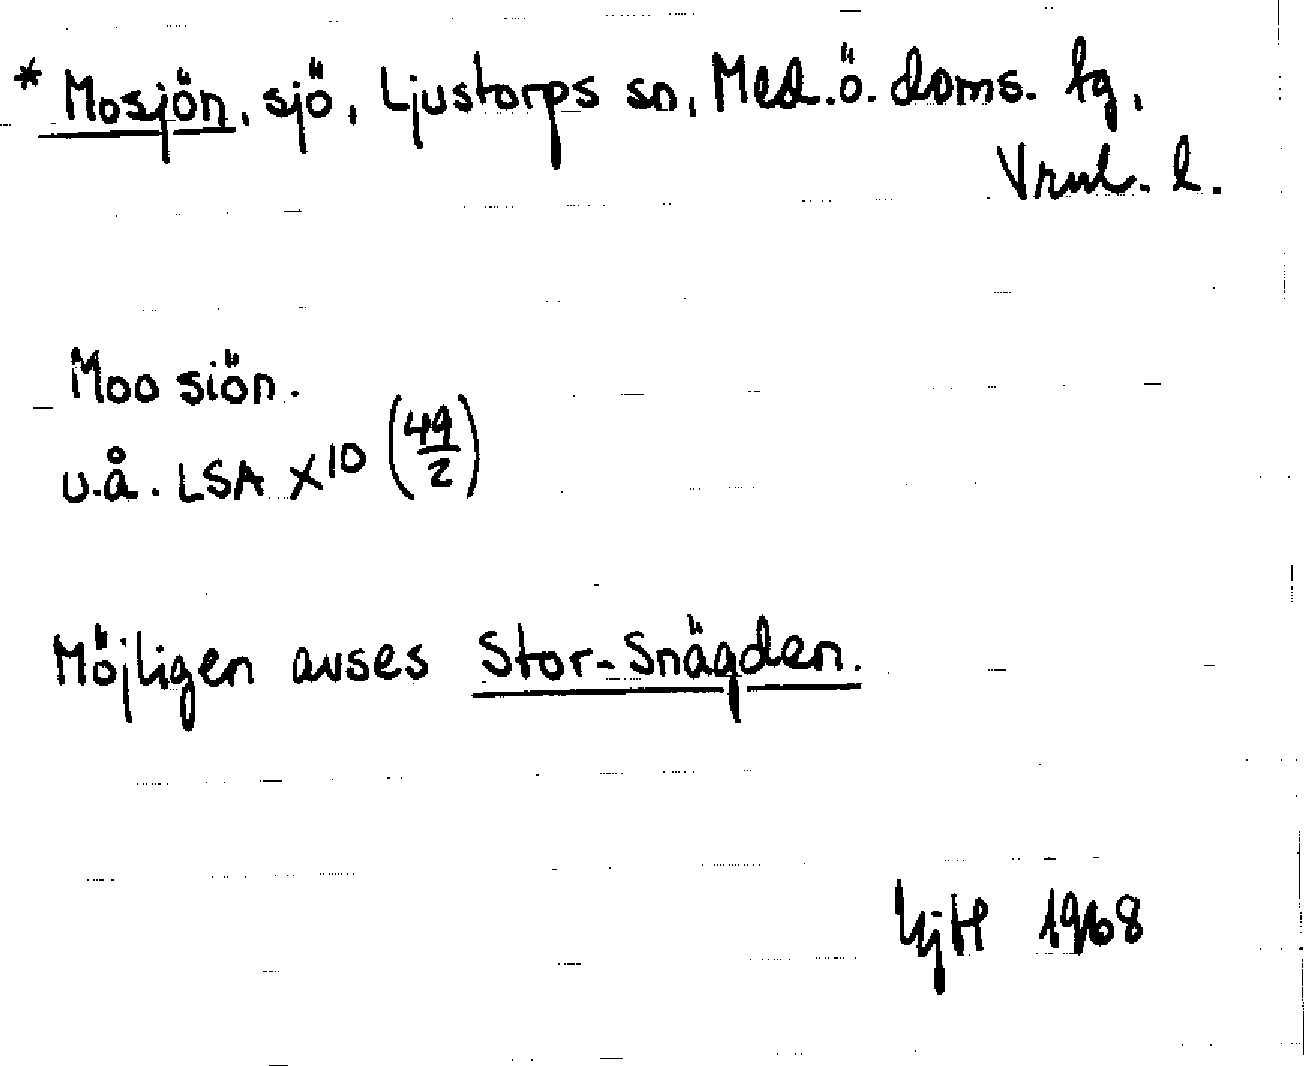 * Mosjön, sjö, Ljustorps sn, Med.ö. doms. tg,
Vrml. l.
Moo siön.
u.å. LSA X10 (49/2)
Möjligen avses Stor-Snägden.
1968